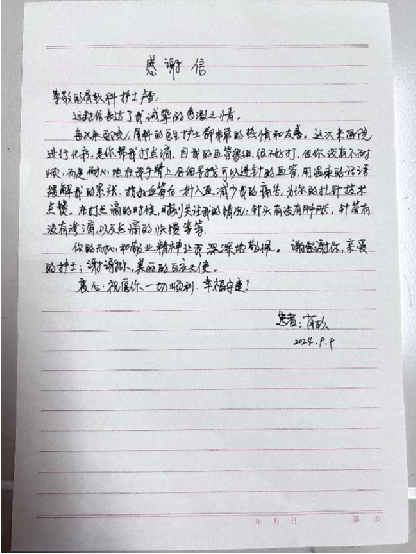 感谢信
尊敬的 护士
这封信表达了我诚挚的感恩之情。
每次来医院, 的医生护士都 的热情和友善。这次来医院
进行化疗,是你帮我打点滴,因我的血管很细,很不好打,但你没有不耐
烦,而是耐心地在我手臂上 寻找可以进针的血管,用温柔的话语
缓解我的紧张, 一针入血 减少我的痛苦,为你的扎针技术
点赞。在打点滴的时候,时刻关注我的情况:针头有没有肿胀,针管有
没有堵滴,以及点滴的快慢等等
你的耐心和敬业精神让我深深地敬佩。谢谢你,亲爱
的护士;谢谢你,美丽的白衣天使。
衷心祝愿你一切顺利,幸福安康!
患者:
9.9
年 月 日 第 页